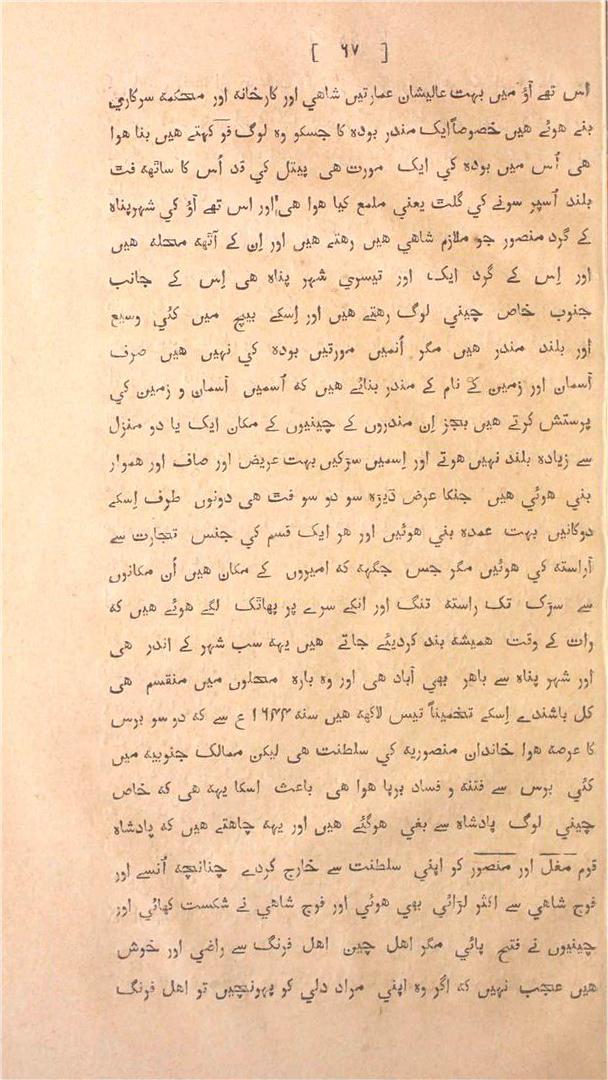 [ ۶۷ ]
اس تھے آؤ میں بہت عالیشان عمارتیں شاهي اور کارخانہ اور محکمہ سرکاري
بنے هوئے هیں خصوصاً ایک مندر بودہ کا جسکو وہ لوگ فو کہتے هیں بنا هوا
هی اُس میں بودہ کي ایک مورت هی پیتل کي قد اُس کا ساٹھہ فٹ
بلند اُسپر سونے کي گلٹ یعني ملمع کیا هوا هی اور اس تھے آؤ کي شہرپناہ
کے گرد منصور جو ملازم شاهي هیں رهتے هیں اور اِن کے آٹھہ محلہ هیں
اور اِس کے گرد ایک اور تیسري شہر پناہ هی اِس کے جانب
جنوب خاص چیني لوگ رهتے هیں اور اِسکے بیچ میں کئي وسیع
اور بلند مندر هیں مگر اُنمیں مورتیں بودہ کي نہیں هیں صرف
آسمان اور زمین کے نام کے مندر بنائے هیں کہ اُسمیں آسمان و زمین کي
پرستش کرتے هیں بجز اِن مندروں کے چینیوں کے مکان ایک یا دو منزل
سے زیادہ بلند نہیں هوتے اور اِسمیں سڑکیں بہت عریض اور صاف اور هموار
بني هوئي هیں جنکا عرض ڈیڑہ سو دو سو فٹ هی دونوں طرف اِسکے
دوکانیں بہت عمدہ بني هوئیں اور هر ایک قسم کي جنس تجارت سے
آراستہ کي هوئیں مگر جس جگہہ کہ امیروں کے مکان هیں اُن مکانوں
سے سڑک تک راستہ تنگ اور انکے سرے پر پھاٹک لگے هوئے هیں کہ
رات کے وقت همیشہ بند کردیئے جاتے هیں یہہ سب شہر کے اندر هی
اور شہر پناہ سے باهر بھي آباد هی اور وہ بارہ محلوں میں منقسم هی
کل باشندے اِسکے تخمیناً تیس لاکھہ هیں سنہ ۱۶۴۴ ع سے کہ دو سو برس
کا عرصہ هوا خاندان منصوریہ کي سلطنت هی لیکن ممالک جنوبیہ میں
کئي برس سے فتنہ و فساد برپا هوا هی باعث اسکا یہہ هی کہ خاص
چیني لوگ پادشاہ سے بغي هوگئے هیں اور یہہ چاهتے هیں کہ پادشاہ
قوم مغل اور منصور کو اپني سلطنت سے خارج کردے چنانچہ اُنسے اور
فوج شاهي سے اکثر لڑائي بھي هوئي اور فوج شاهي نے شکست کھائي اور
چینیوں نے فتح پائي مگر اهل چین اهل فرنگ سے راضي اور خوش
هیں عجب نہیں کہ اگر وہ اپني مراد دلي کو پہونچیں تو اهل فرنگ